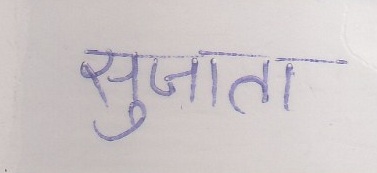 सुजाता